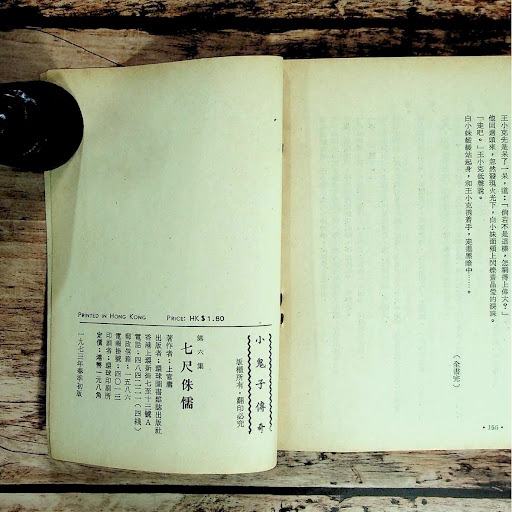 王小克先是呆了一呆，道：「倘若不是這樣，怎稱得上偉大？」
他回過頭來，忽然發現火光下，白小妹面頰上閃爍着晶瑩的淚珠。
「走吧。」王小克低聲說。
白小妹緩緩站起身，和王小克挽着手，走進黑暗中……。
（全書完）
PRINTED IN HONG KONG PRICE: HK$1.80
小鬼子傳奇
版權所有・翻印必究
第六集
七尺侏儒
著作者：上官庸
出版者：環球圖書雜誌出版社
香港上環新街七至十三號A
電話：四八四二二一（四綫）
郵政信箱：一五八六
電報掛號：四〇一三
印刷者：環球印刷所
定價：港幣一元八角
一九七三年春季初版